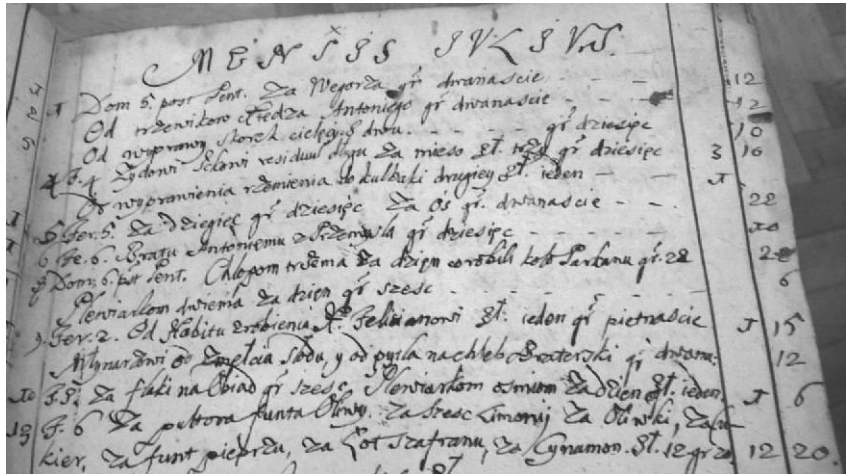 MENSIS IVLIVS.
1 Dom 5. post Pent. Za Węgorza gr dwanascie - - - 12
Od trzewikow Xiędza Antoniego gr dwanascie - - - 12
Od wyprawy skorek cielęcych dwu. - - - gr dziesięc 10
4 F. 4 Zydowi residuum długu za mięso zł. trzy gr dziesięc 3 10
Od wyprawienia rzemienia do kulbaki drugiey zł. ieden - - 1
5 Fer. 5. Za dziegiec gr dziesięc Za oś gr. dwanascie - - - 22
6 Fe. 6. Bratu Antoniemu z Przemysla gr dziesięc - - - 10
8 Dom. 6. post Pent. Chłopom trzema za dzien co robili koło Parkanu gr. 28 28
Plewiarkom dwiema za dzien gr szesc - - - 6
9. Fer. 2. Od Habitu zrobienia X. Felicianowi zł. ieden gr pietnascie 1 15
Młynarzowi od zmelcia słodu, y od pytla na chleb Braterski gr dwana: 12
10 F. 3. Za flaki na Obiad gr szesc, Plewiarkom osmiom za dzien zł. ieden. 1 6
13 F. 6 Za pułtora funta Oliwy. Za szesc Limonij Za Oliwki, Za cu-
kier, Za funt pieprzu, za Łot szafranu, za Cynamon. zł. 12 gr 20. 12 20.